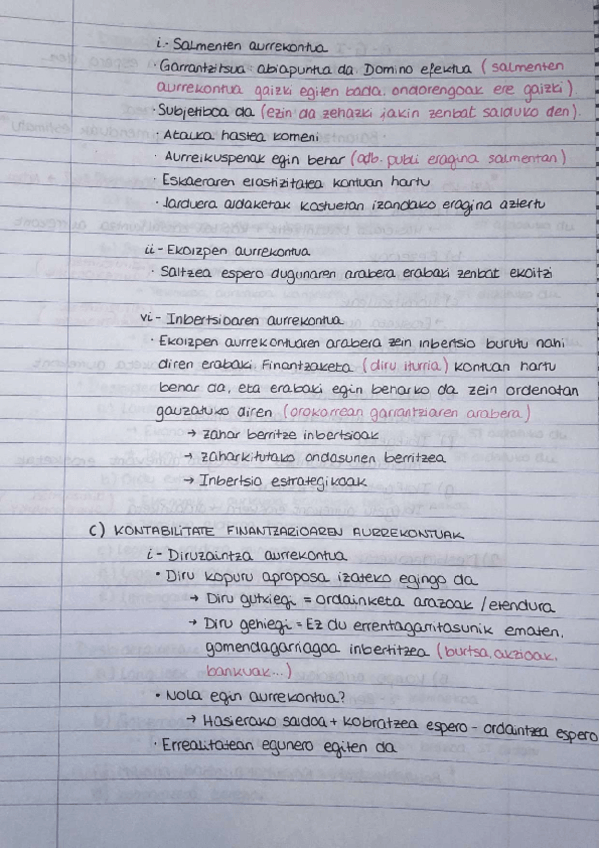 i.- Salmenten aurrekontua
· Garrantzitsua: abiapuntua da. Domino efektua (salmenten
aurrekontua gaizki egiten bada, ondorengoak ere gaizki).
· Subjetiboa da (ezin da zehazki jakin zenbat salduko den).
· Atalka hastea komeni
· Aurreikuspenak egin behar (adb. publi eragina salmentan)
· Eskaeraren elastizitatea kontuan hartu
· Jarduera aldaketak kostuetan izandako eragina aztertu
ii - Ekoizpen aurrekontua
· Saltzea espero dugunaren arabera erabaki zenbat ekoitzi
vi - Inbertsioaren aurrekontua
· Ekoizpen aurrekontuaren arabera zein inbertsio burutu nahi
diren erabaki. Finantzaketa (diru iturria) kontuan hartu
behar da, eta erabaki egin beharko da zein ordenatan
gauzatuko diren (orokorrean garrantziaren arabera)
→ zahar berritze inbertsioak
→ zaharkitutako ondasunen berritzea
→ Inbertsio estrategikoak
C) KONTABILITATE FINANTZARIOAREN AURREKONTUAK
i - Diruzaintza aurrekontua
· Diru kopuru aproposa izateko egingo da
→ Diru gutxiegi = ordainketa arazoak / etendura
→ Diru gehiegi = Ez du errentagarritasunik ematen,
gomendagarriagoa inbertitzea (burtsa, akzioak,
bankuak...)
· Nola egin aurrekontua?
→ Hasierako saldoa + kobratzea espero - ordaintzea espero
· Errealitatean egunero egiten da